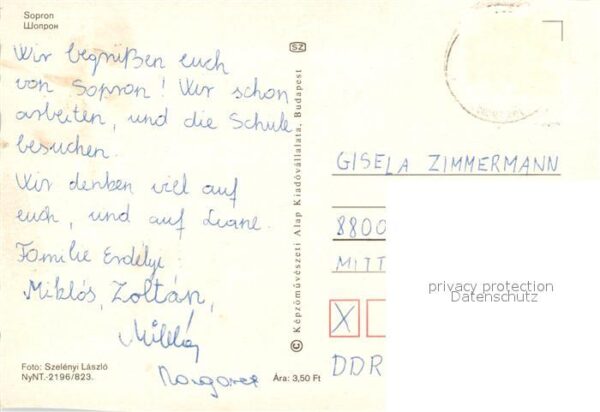 Sopron
Шопрон
Wir begrüßen euch
von Sopron! Wir schon
arbeiten, und die Schule
besuchen.
Wir denken viel auf
euch, und auf Liane.
Familie Erdélyi
Miklós, Zoltán,
Foto: Szelényi László
NyNT.-2196/823.
Ára: 3,50 Ft
SZ
© Képzőművészeti Alap Kiadóvállalata, Budapest
GISELA ZIMMERMANN
8800
MITT
X
DDR
privacy protection
Datenschutz